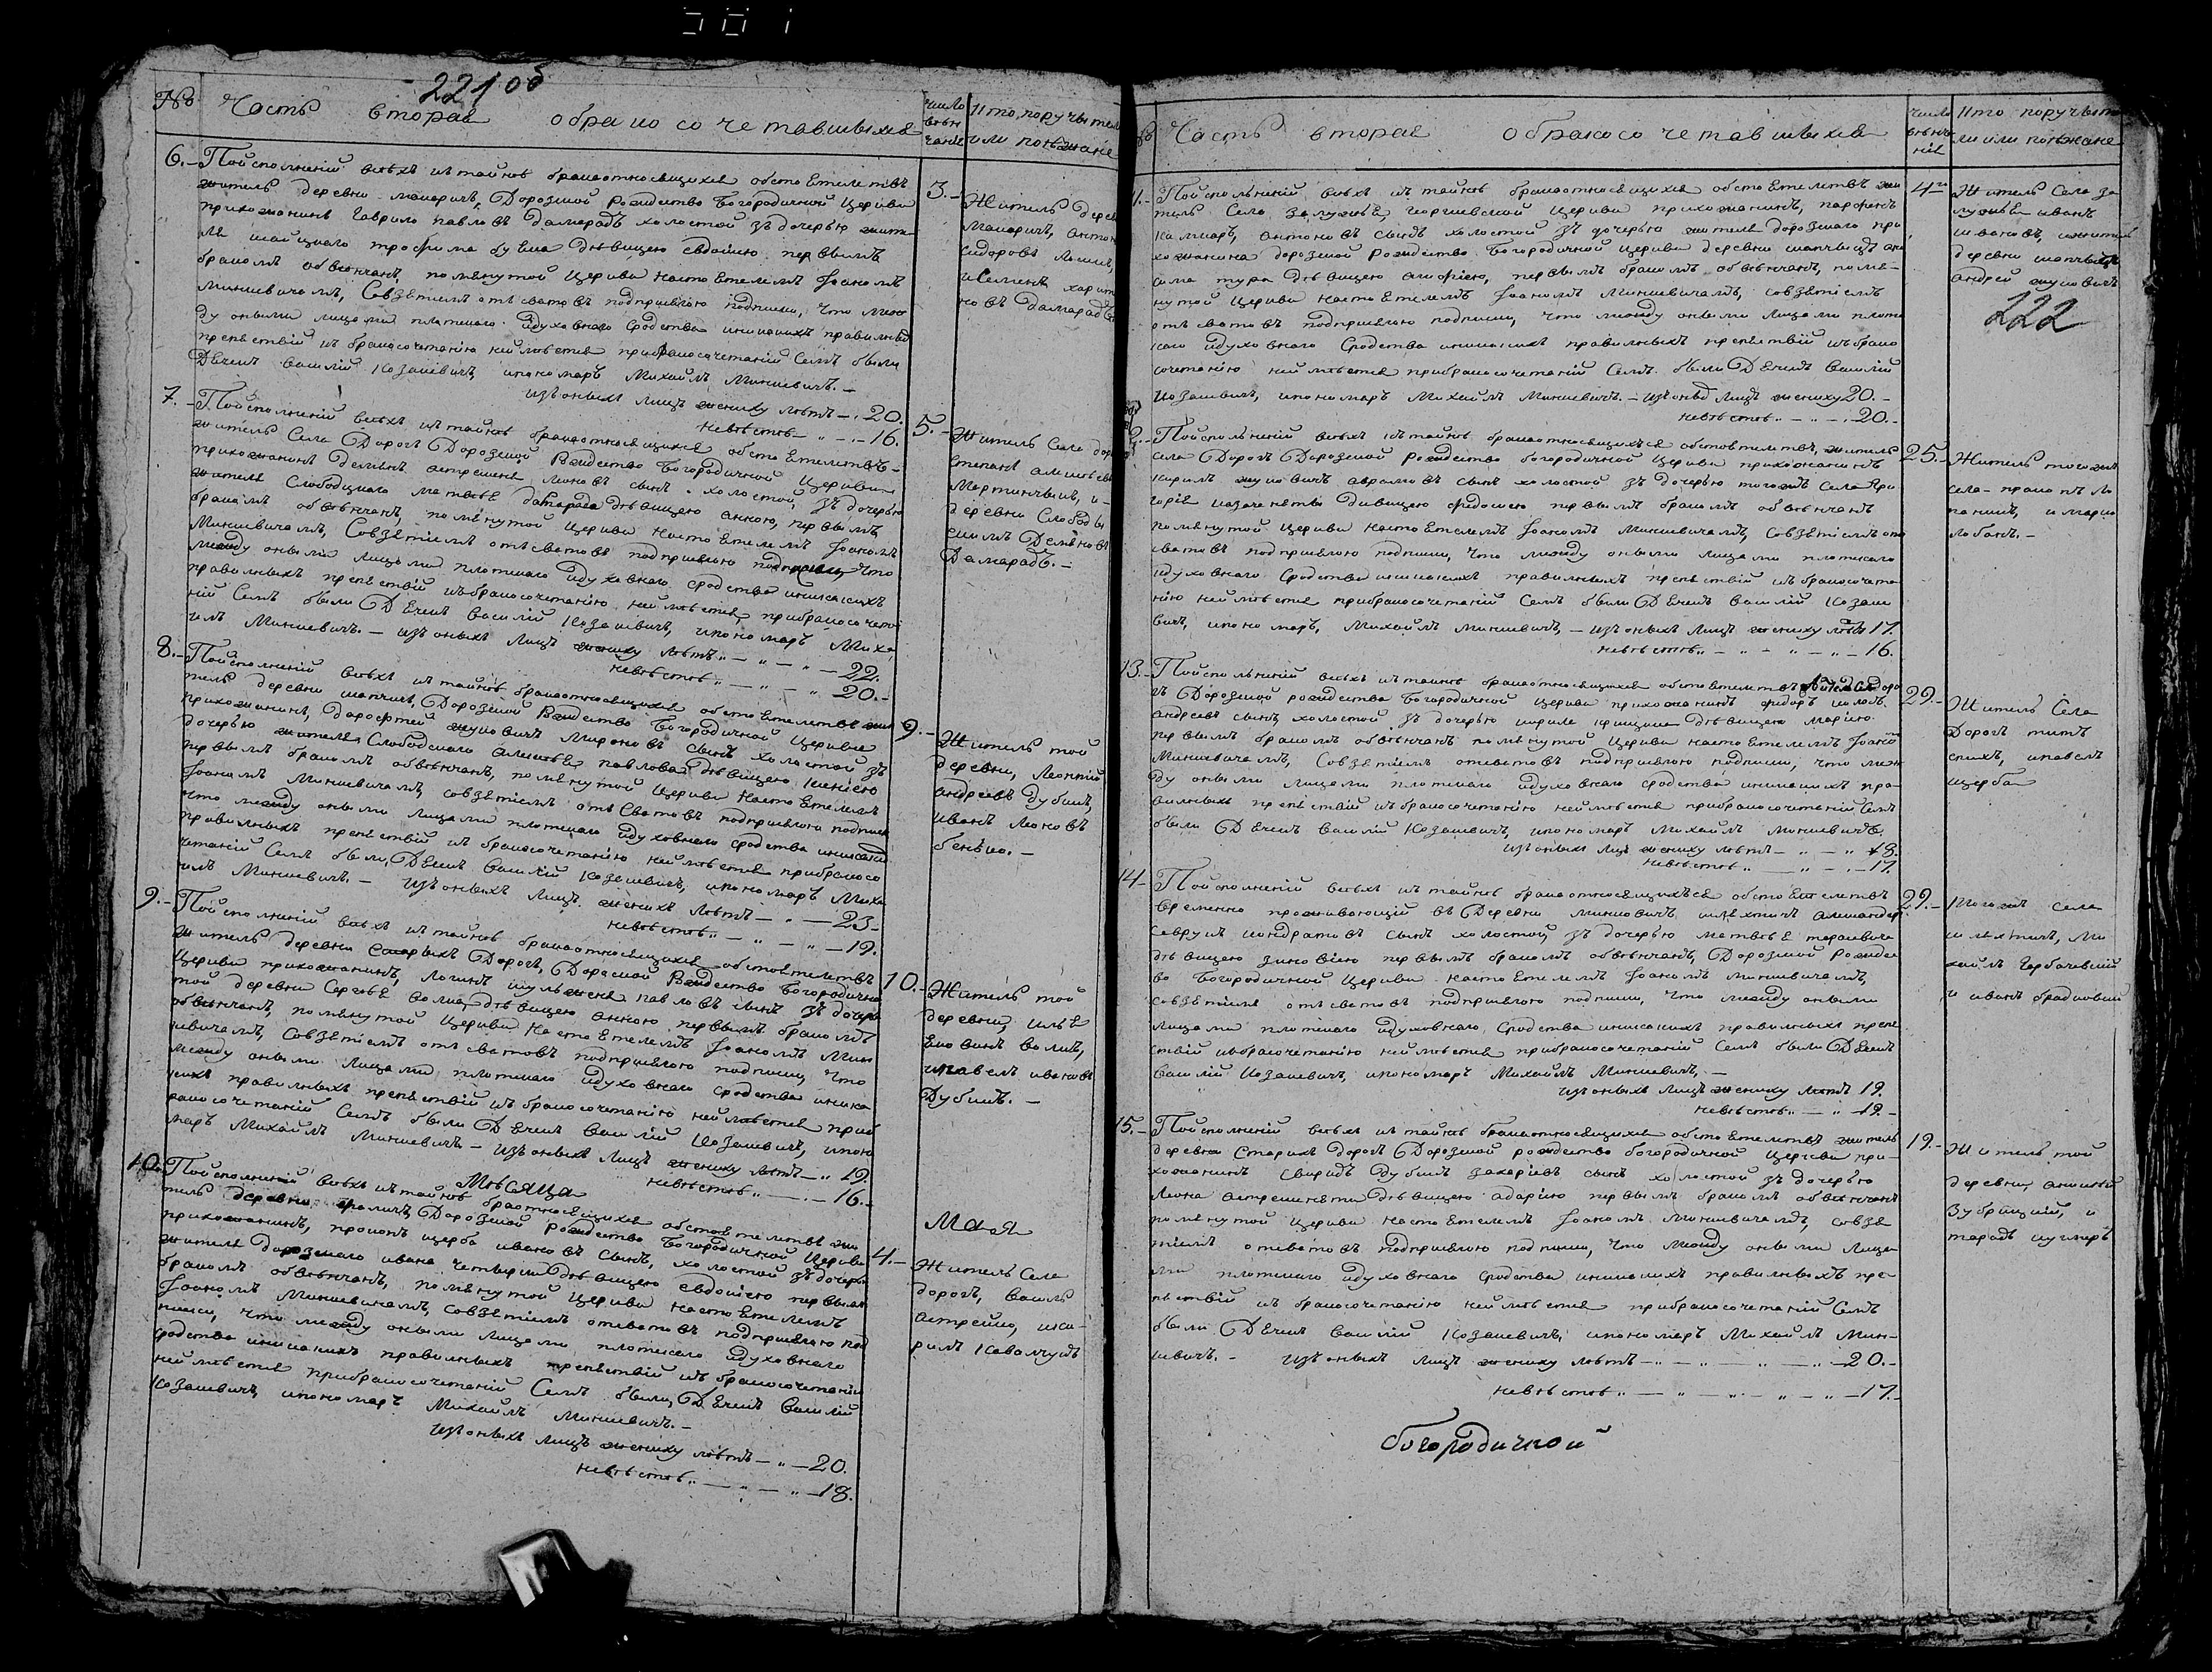 221 об
№ Часть вторая о бракосочетавшихся число венчания Кто поручители или поезжане
6.- По исполнении всехъ къ тайне бракаотносящихся обстоятелствъ
житель деревни макаричъ, Дорозкой рождество Богородичной Церкви
прихожанинъ Гаврило павловъ Дамарадъ холостой зъ дочерью жите
ля трофима девицею евдокиею первымъ
бракомъ обвенчанъ, помянутой Церкви настоятелемъ Іоаномъ
Минкевичемъ, Совзятіемъ отъ сватовъ подприсягою подписки, что меж
ду оными лицами плотскаго идуховнаго Сродства иникакихъ правилных
препятствій къ бракосочетанію неимеется прибракосочетаніи Семъ были
Дячекъ Василій Козакевичъ, ипономарь Михаилъ Минкевичъ.-
изъ оныхъ лицъ жениху летъ - . 20.
невесте - „ - . - 16.
3.-
Житель дерев
Макаричъ, антон
Сидоровъ
иСеменъ харит
новъ Дамарадъ
7.- По исполнении всехъ къ тайне бракаотносящихся обстоятелствъ-
житель Села Дорогъ Дорозкой Рождество Богородичной Церкви
прихожанинъ Демянъ астрейко леоновъ сынъ холостой, зъ дочерью
жителя Слободскаго матвея дамарада девицею анною, первымъ
бракомъ обвенчанъ, помянутой Церкви настоятелемъ Іоаномъ
Минкевичемъ, Совзятіемъ отъсватовъ подприсягою подписки, что
между оными лицами плотскаго идуховнаго сродства иникакихъ
правилныхъ препятствій къбракосочетанію неимеется, прибракосочета
ніи Семъ были Дячекъ Василій Козакевичъ, ипономарь Миха
илъ Минкевичъ.- изъ оныхъ Лицъ жениху летъ „ - „ - „ - 22.
невесте „ - „ - „ 20.-
5.-
Житель Села доро
Степанъ алексеев
Мартинчикъ, и-
деревни Слобод
Демяновъ
Дамарадъ.-
8.- По исполнении всехъ къ тайне бракаотносящихся обстоятелствъ жи
тель деревни шапчицъ, Дорозкой Рождество Богородичной Церкви
прихожанинъ, дорофтей жуковичъ Мироновъ сынъ холостой зъ
дочерью жителя Слободскаго алексея павлова девицею ксениею
первымъ бракомъ обвенчанъ, помянутой Церкви Настоятелемъ
Іоаномъ Минкевичемъ, совзятіемъ отъ Сватовъ подприсягою подписк
что между оными лицами плотскаго идуховнаго сродства иникаких
правилныхъ препятствій къ бракосочетанію неимеется прибракосо
четаніи Семъ были, Дячекъ Василій Козакевичъ, ипономарь Миха
илъ Минкевичъ.- изъ оныхъ Лицъ жениху летъ - „ - 23-
невесте „ - „ - „ - 19.
9.-
Житель той
деревни, Леонтий
андреевъ дубикъ,
иванъ Леоновъ
бенько.-
9.- По исполнении всехъ къ тайне бракаотносящихся обстоятелствъ
житель деревни Старыхъ Дорогъ, Дорозкой Рождество Богородично
Церкви прихожанинъ, логинъ павловъ сынъ зъ дочерью
той деревни Сергея волка девицею анною первымъ бракомъ
обвенчанъ, помянутой Церкви Настоятелемъ Іоаномъ Мин
кевичемъ, Совзятіемъ отъ сватовъ подприсягою подписки, что
между оными Лицами плотскаго идуховнаго сродства иника
кихъ правилныхъ препятствій къ бракосочетанію неимеется приб
ракосочетаніи Семъ были Дячекъ Василій Козакевичъ, ипоно
марь Михаилъ Минкевичъ - изъ оныхъ Лицъ жениху летъ - „ 19.
невесте „ - . - 16.-
10.-
Житель той
деревни, илья
волкъ,
ипавелъ ивановъ
Дубикъ.-
Месяца Мая
10. По исполнении всехъ къ тайне бракаотносящихся обстоятелствъ жи
тель деревни Дорозкой рождество Богородичной Церкви
прихожанинъ, прокопъ щерба ивановъ сынъ, холостой зъ дочерью
жителя Дорозкаго ивана девицею евдокиею первым
бракомъ обвенчанъ, помянутой Церкви Настоятелемъ
Іоаномъ Минкевичемъ, Совзятіемъ отсватовъ подприсягою под
писки, что между оными Лицами плотскаго идуховнаго
сродства иникакихъ правилныхъ препятствій къ бракосочетанію
неимеется прибракосочетаніи Семъ были, Дячекъ Василій
Козакевичъ, ипономарь Михаилъ Минкевичъ.-
изъ оныхъ Лицъ жениху летъ - „ - 20.
невесте „ - „ - „ - 18.
4.-
Житель Села
дорогъ, Василь
астрейко, ики-
рилъ Ковалчукъ
Часть вторая о бракосочетавшихся число венчания Кто поручите ли или поезжане
222
11.- По исполнении всехъ къ тайне бракаотносящихся обстоятелствъ жи
тель Села залужья георгиевской Церкви прихожанинъ, парфенъ
антоновъ сынъ холостой зъ дочерью жителя дорозкаго при
хожанина дорозкой Рождество Богородичной Церкви деревни шапчицъ
девицею агафиею, первымъ бракомъ обвенчанъ, помя-
нутой Церкви Настоятелемъ Іоаномъ Минкевичемъ, совзятіемъ
отъ сватовъ подприсягою подписки, что между оными лицами плот
скаго идуховнаго Сродства иникакихъ правилныхъ препятствій къбрако
сочетанію неимеется прибракосочетаніи Семъ были Дячекъ Василій
Козакевичъ, ипономарь Михаилъ Минкевичъ.- изъ оныхъ Лицъ жениху 20.-
невесте „ - „ - . 20.-
4го
Житель Села за
лужья иванъ
ивановъ, ижитель
деревни шапчицъ
андрей жуковичъ
12.- По исполнении всехъ къ тайне бракаотносящихъся обстоятелствъ, житель
села Дорогъ Дорозкой рождество богородичной Церкви прихожанинъ
кирилъ жуковичъ авраамовъ сынъ холостой зъ дочерью тогожъ села Гри
горія девицею первымъ бракомъ обвенчанъ
помянутой Церкви Настоятелемъ Іоаномъ Минкевичемъ, Совзятіемъ от
сватовъ подприсягою подписки, что между оными Лицами плотскаго
идуховнаго Сродства иникакихъ правилныхъ препятствій къ бракосочета
нію неимеется прибракосочетаніи Семъ были Дячекъ Василій Козаке
вичъ, ипономарь, Михаилъ Минкевичъ,- изъ оныхъ Лицъ жениху летъ 17.
невесте „ - „ - „ - „ - 16.
25.-
Житель тогожъ
села-
и марко
лобанъ.-
13.- По исполнении всехъ къ тайне бракаотносящихся обстоятелствъ житель Села доро
гъ Дорозкой рождества Богородичной Церкви прихожанинъ фидоръ
андреевъ сынъ холостой зъ дочерью девицею мариею
первымъ бракомъ обвенчанъ помянутой Церкви настоятелемъ Іоаном
Минкевичемъ, Совзятіемъ отсватовъ подприсягою подписки, что меж
ду оными лицами плотскаго идуховнаго сродства иникакихъ пра
вилныхъ препятствій къбракосочетанію неимеется прибракосочетаніи Семъ
были Дячекъ Василій Козакевичъ, ипономарь Михаилъ Минкевичъ.
изъ оныхъ лицъ жениху летъ - „ - „ 18.
невесте „ - „ - . - 17.
29.-
Житель Села
Дорогъ титъ
ипавелъ
щерба
14.- По исполнении всехъ къ тайне бракаотносящихъся обстоятелствъ
временно проживающій въ Деревни минковичъ шляхтичъ александеръ
севрукъ кондратовъ сынъ холостой, зъ дочерью матвея
девицею зиновиею первымъ бракомъ обвенчанъ, Дорозкой рождест
во Богородичной Церкви Настоятелемъ Іоаномъ Минкевичемъ,
Совзятіемъ отъсватовъ подприсягою подписки, что между оными
Лицами плотскаго идуховнаго Сродства иникакихъ правилныхъ препя
ствій къбракосочетанію неимеется прибракосочетаніи Семъ были Дячекъ
Василій Козакевичъ, ипономарь Михаилъ Минкевичъ,-
изъ оныхъ Лицъ жениху летъ 19.
невесте „ - „ - 19.-
29.-
Тогожъ села
шляхтичъ, Ми
хаилъ Горбачевский
и иванъ
15.- По исполнении всехъ къ тайне бракаотносящихся обстоятелствъ житель
деревни Старихъ Дорогъ Дорозкой рождество богородичной Церкви при-
хожанинъ Свиридъ Дубикъ захаріевъ сынъ холостой зъ дочерью
Леона девицею адарию первымъ бракомъ обвенчанъ
помянутой Церкви Настоятелемъ Іоаномъ Минкевичемъ, совзя
тіемъ отсватовъ подприсягою подписки, что между оными Лица
ми плотскаго идуховнаго сродства иникакихъ правилныхъ пре-
пятствій къ бракосочетанію неимеется прибракосочетаніи Семъ
были Дячекъ Василій Козакевичъ, ипономарь Михаилъ Мин-
кевичъ.- изъ оныхъ лицъ жениху летъ - „ - „ - „ - 20.-
невесте „ - „ - „ - „ - „ - 17.-
19.-
Житель той
деревни,
Зубрицкий, и
тарасъ кушнеръ
богородичной